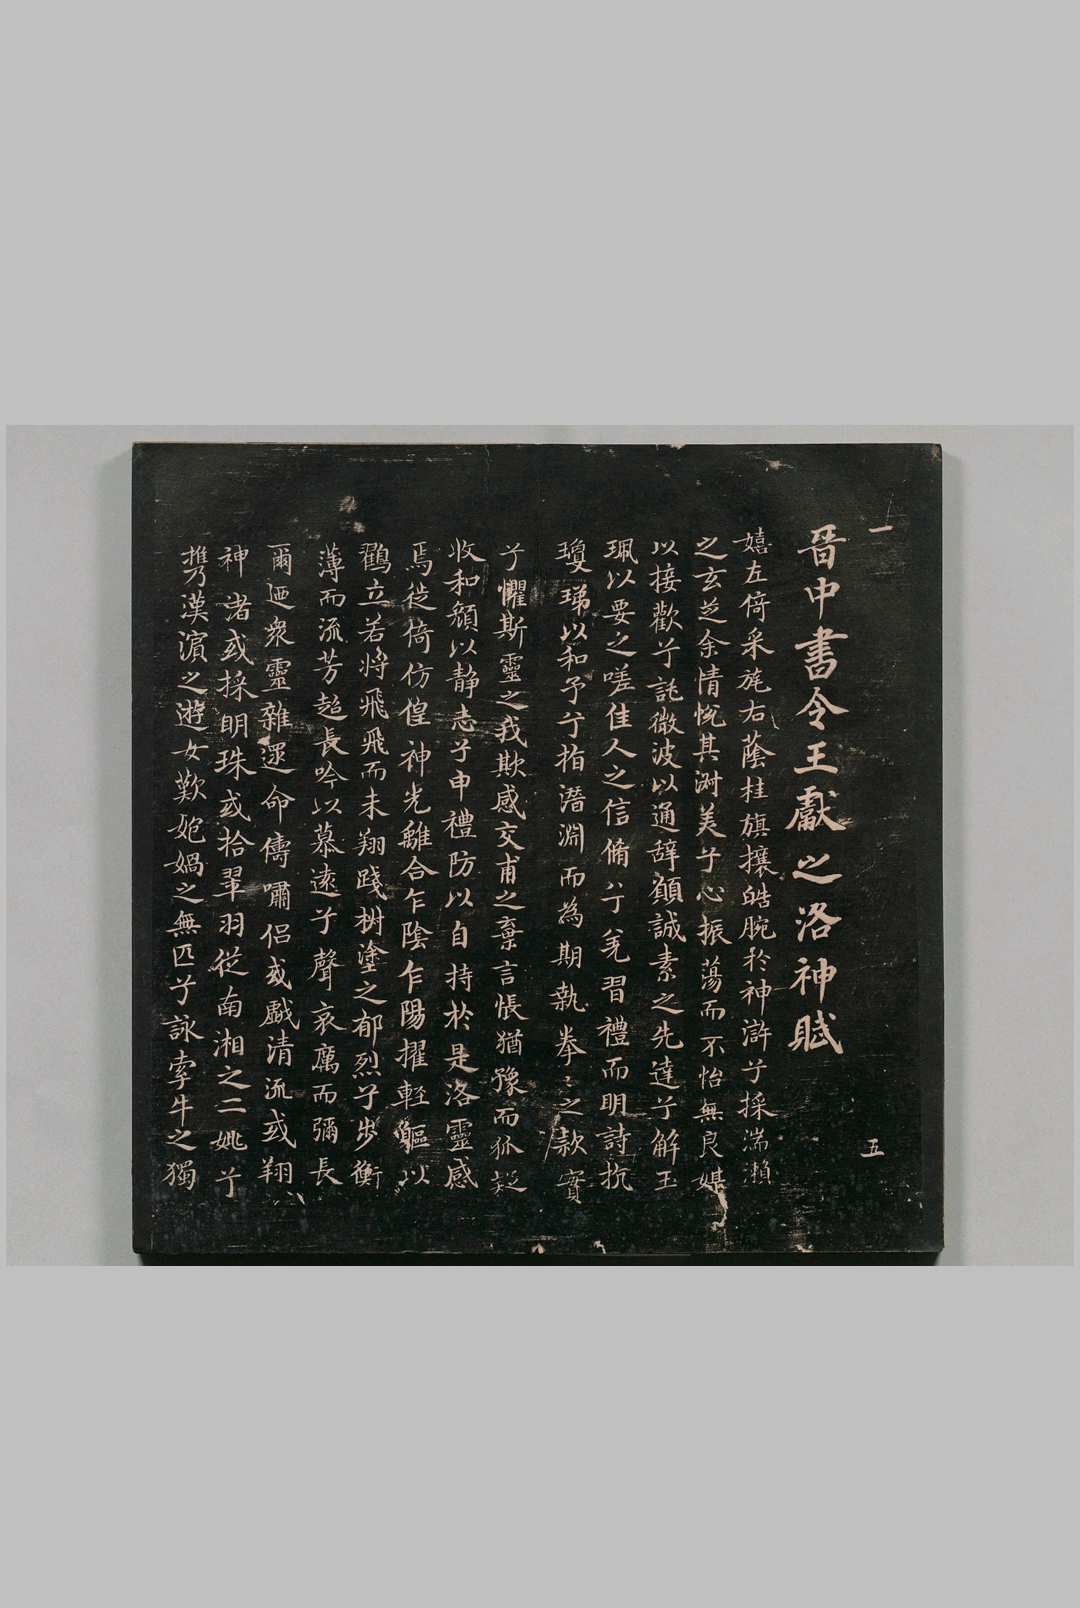 一
五
晉中書令王獻之洛神賦
嬉左倚采旄右蔭桂旗攘皓腕於神滸兮採湍瀨
之玄芝余情悅其淑美兮心振蕩而不怡無良媒
以接歡兮託微波以通辭願誠素之先達兮解玉
珮以要之嗟佳人之信脩兮羌習禮而明詩抗
瓊珶以和予兮指潛淵而為期執拳〻之款實
兮懼斯靈之我欺感交甫之棄言悵猶豫而狐疑
收和顏以静志兮申禮防以自持於是洛靈感
焉徙倚仿偟神光離合乍陰乍陽擢軽軀以
鶴立若將飛飛而未翔踐樹塗之郁烈兮步衡
薄而流芳超長吟以慕遠兮聲哀厲而彌長
爾迺衆靈雜遝命儔嘯侶或戲清流或翔
神渚或採明珠或拾翠羽從南湘之二姚兮
攜漢濱之遊女歎匏媧之無匹兮詠牽牛之獨